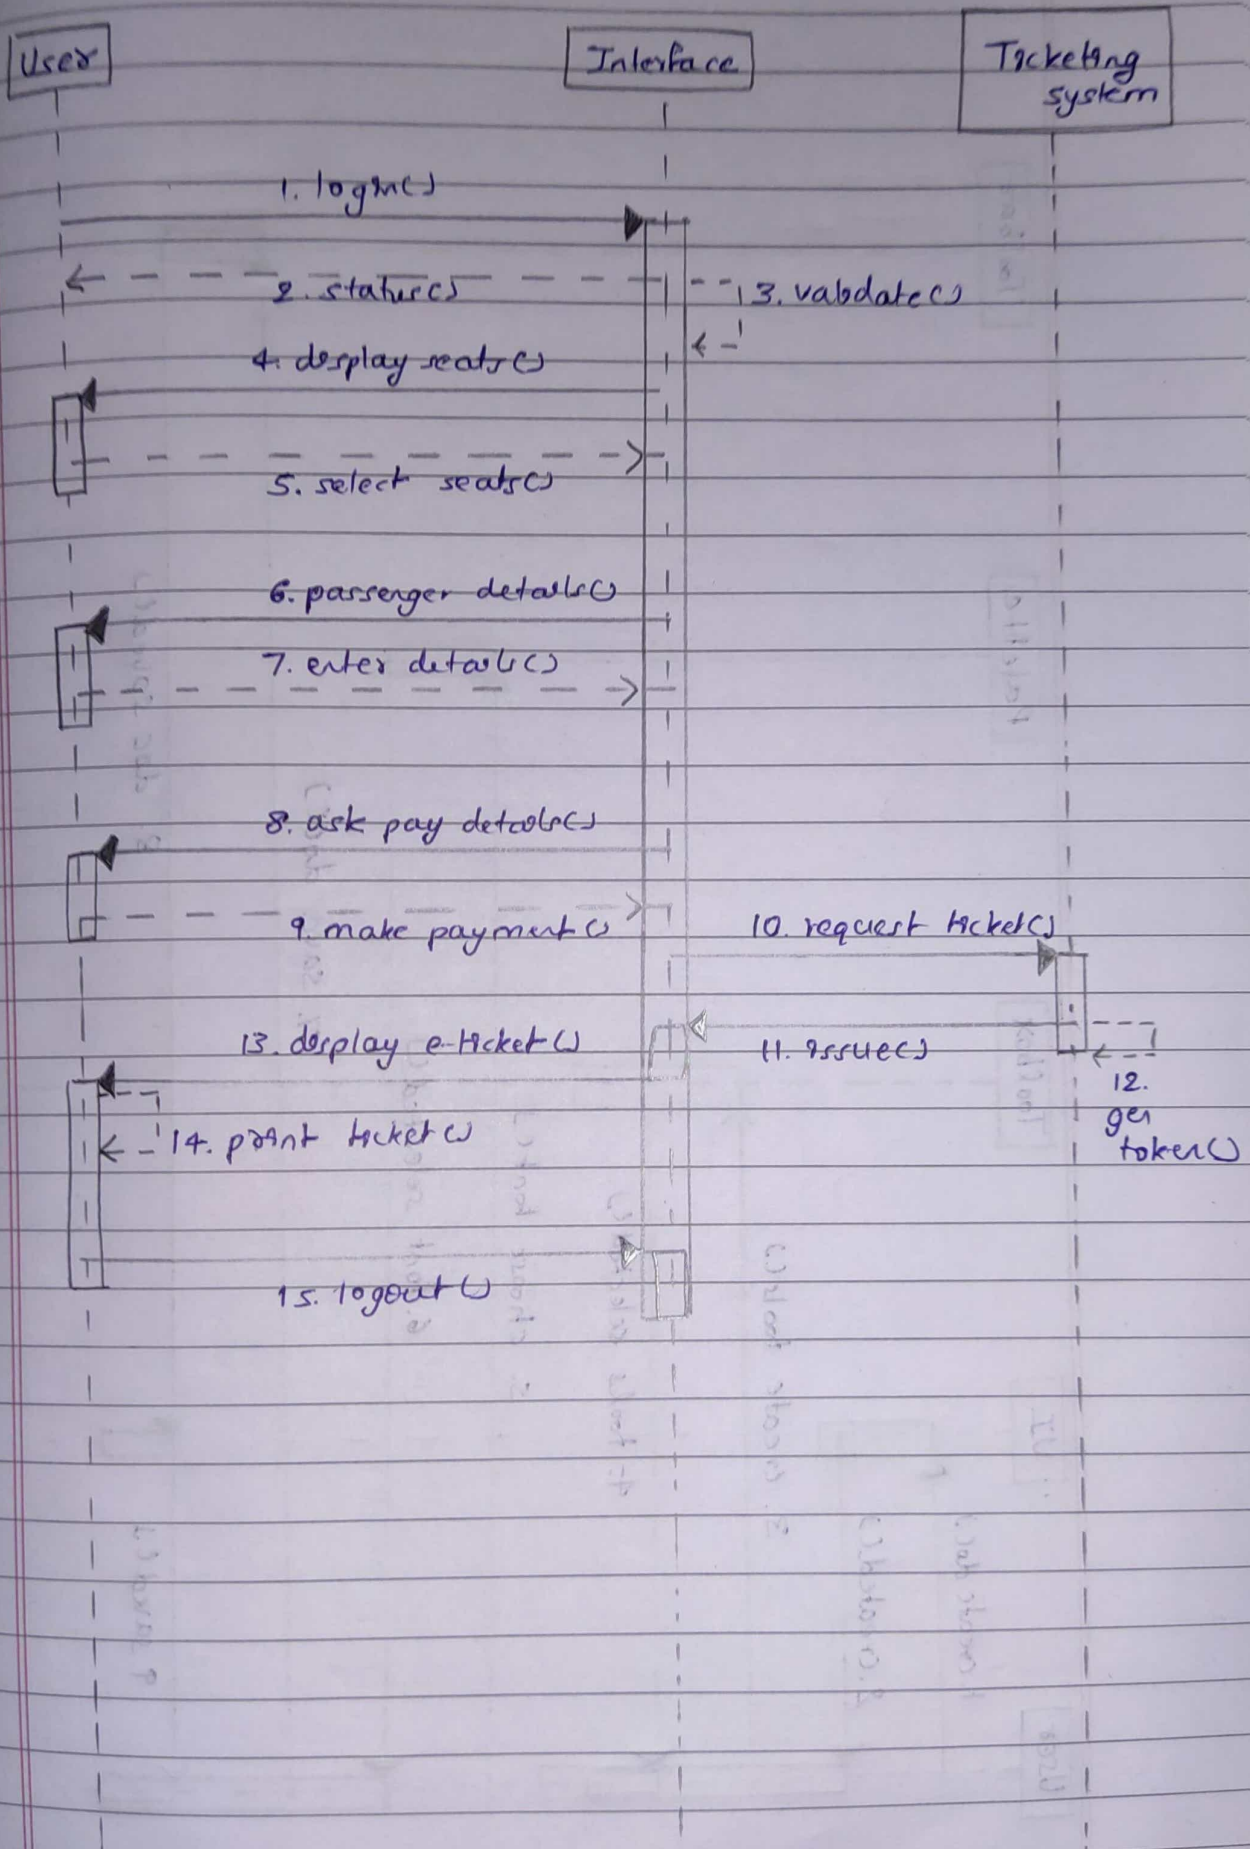 User
Interface
Ticketing
system
1. login()
2. status()
3. validate()
4. display seats()
5. select seats()
6. passenger details()
7. enter details()
8. ask pay details()
9. make payment()
10. request ticket()
13. display e-ticket()
11. issue()
12.
get
token()
14. print ticket()
15. logout()